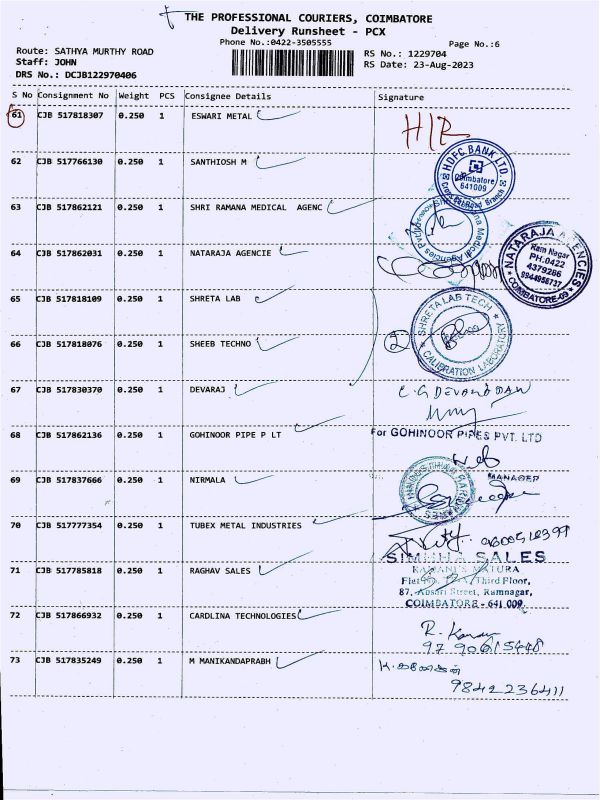 THE PROFESSIONAL COURIERS, COIMBATORE
Delivery Runsheet - PCX
Phone No.:0422-3505555
Page No.:6
Route: SATHYA MURTHY ROAD
RS No.: 1229704
Staff: JOHN
RS Date: 23-Aug-2023
DRS No.: DCJB122970406
S No Consignment No Weight PCS Consignee Details Signature
61 CJB 517818307 0.250 1 ESWARI METAL H/R
62 CJB 517766130 0.250 1 SANTHIOSH M
HDFC BANK LTD.
Coimbatore
641009
Branch
63 CJB 517862121 0.250 1 SHRI RAMANA MEDICAL AGENC
Medical Agencies
64 CJB 517862031 0.250 1 NATARAJA AGENCIE
NATARAJA AGENCIES
Ram Nagar
PH.0422
4379266
9944956737
COIMBATORE-09
65 CJB 517818109 0.250 1 SHRETA LAB
SHRETA LAB TECH
CALIBRATION LABORATORY
66 CJB 517818076 0.250 1 SHEEB TECHNO
2
67 CJB 517830370 0.250 1 DEVARAJ
68 CJB 517862136 0.250 1 GOHINOOR PIPE P LT
For GOHINOOR PIPES PVT. LTD
MANAGER
69 CJB 517837666 0.250 1 NIRMALA
70 CJB 517777354 0.250 1 TUBEX METAL INDUSTRIES
71 CJB 517785818 0.250 1 RAGHAV SALES
SIMMHA SALES
Third Floor,
87, Ansari Street, Ramnagar,
COIMBATORE - 641 009
72 CJB 517866932 0.250 1 CARDLINA TECHNOLOGIES
73 CJB 517835249 0.250 1 M MANIKANDAPRABH
9842236411